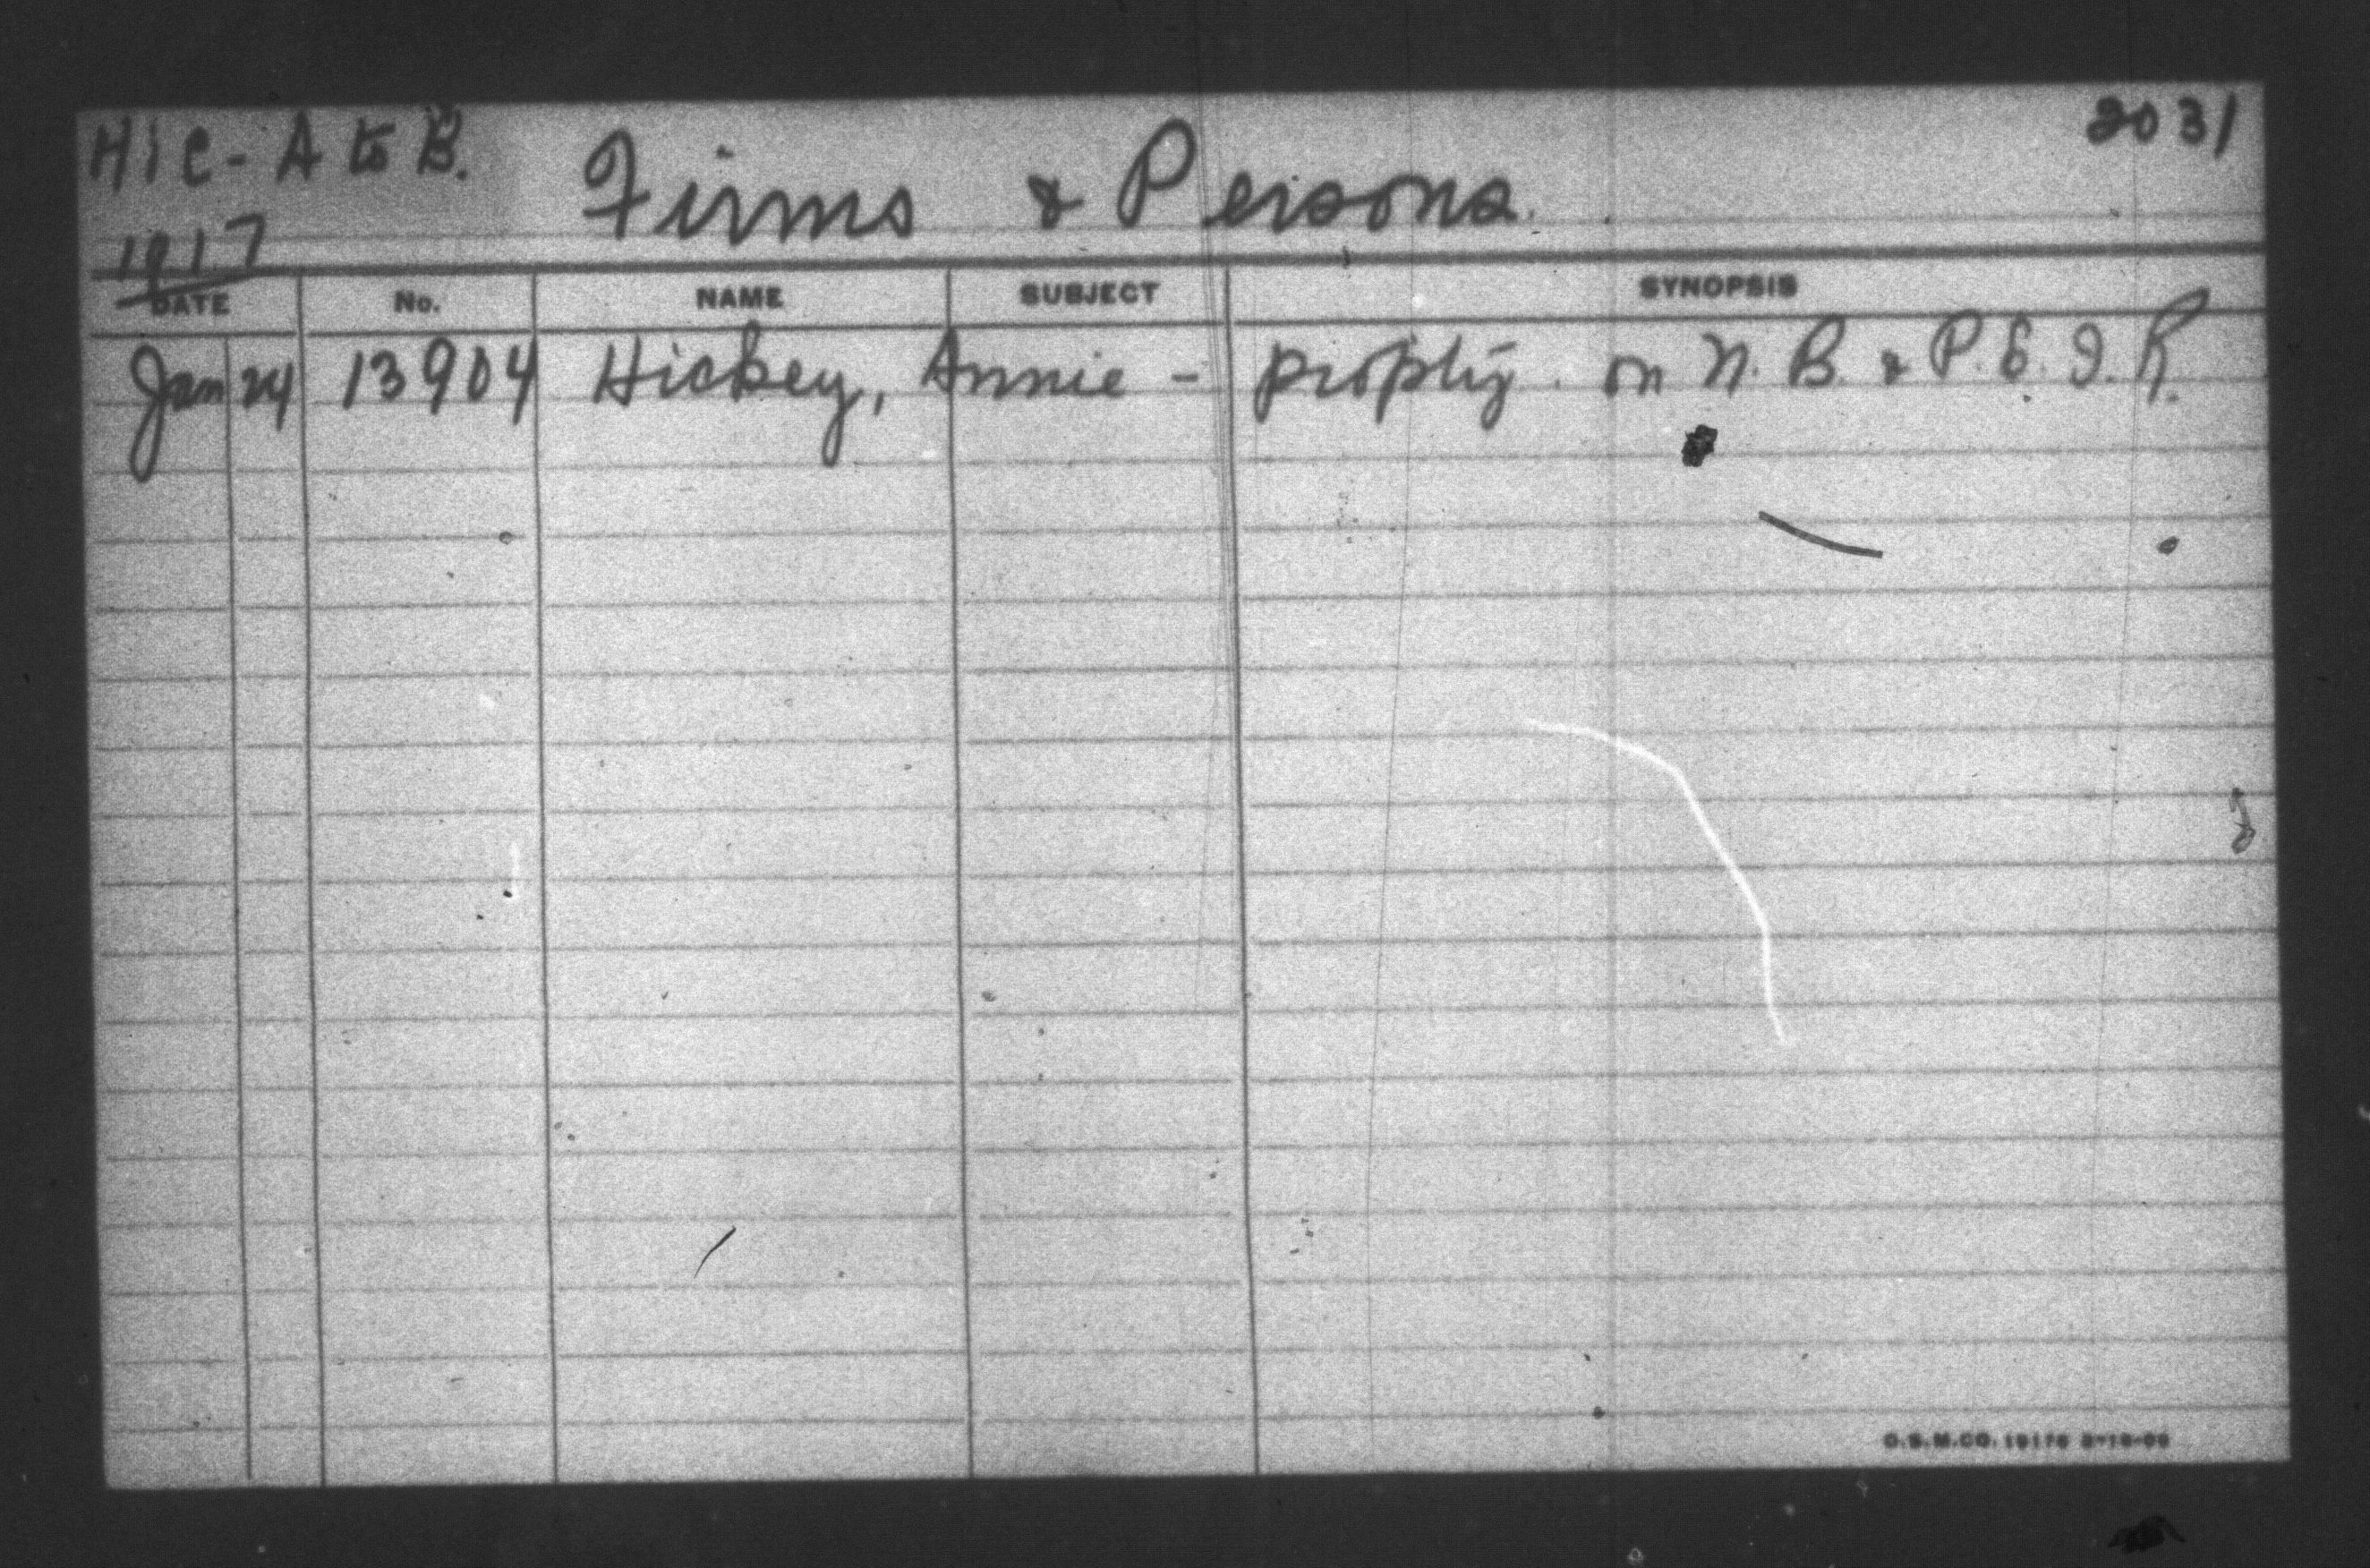 Hic- A to B. Firms & Persons. 2031
1917
DATE No. NAME SUBJECT SYNOPSIS
Jan 24 13904 Hickey, Annie - on N. B. & P. E. I. R.
O.S.M.CO.